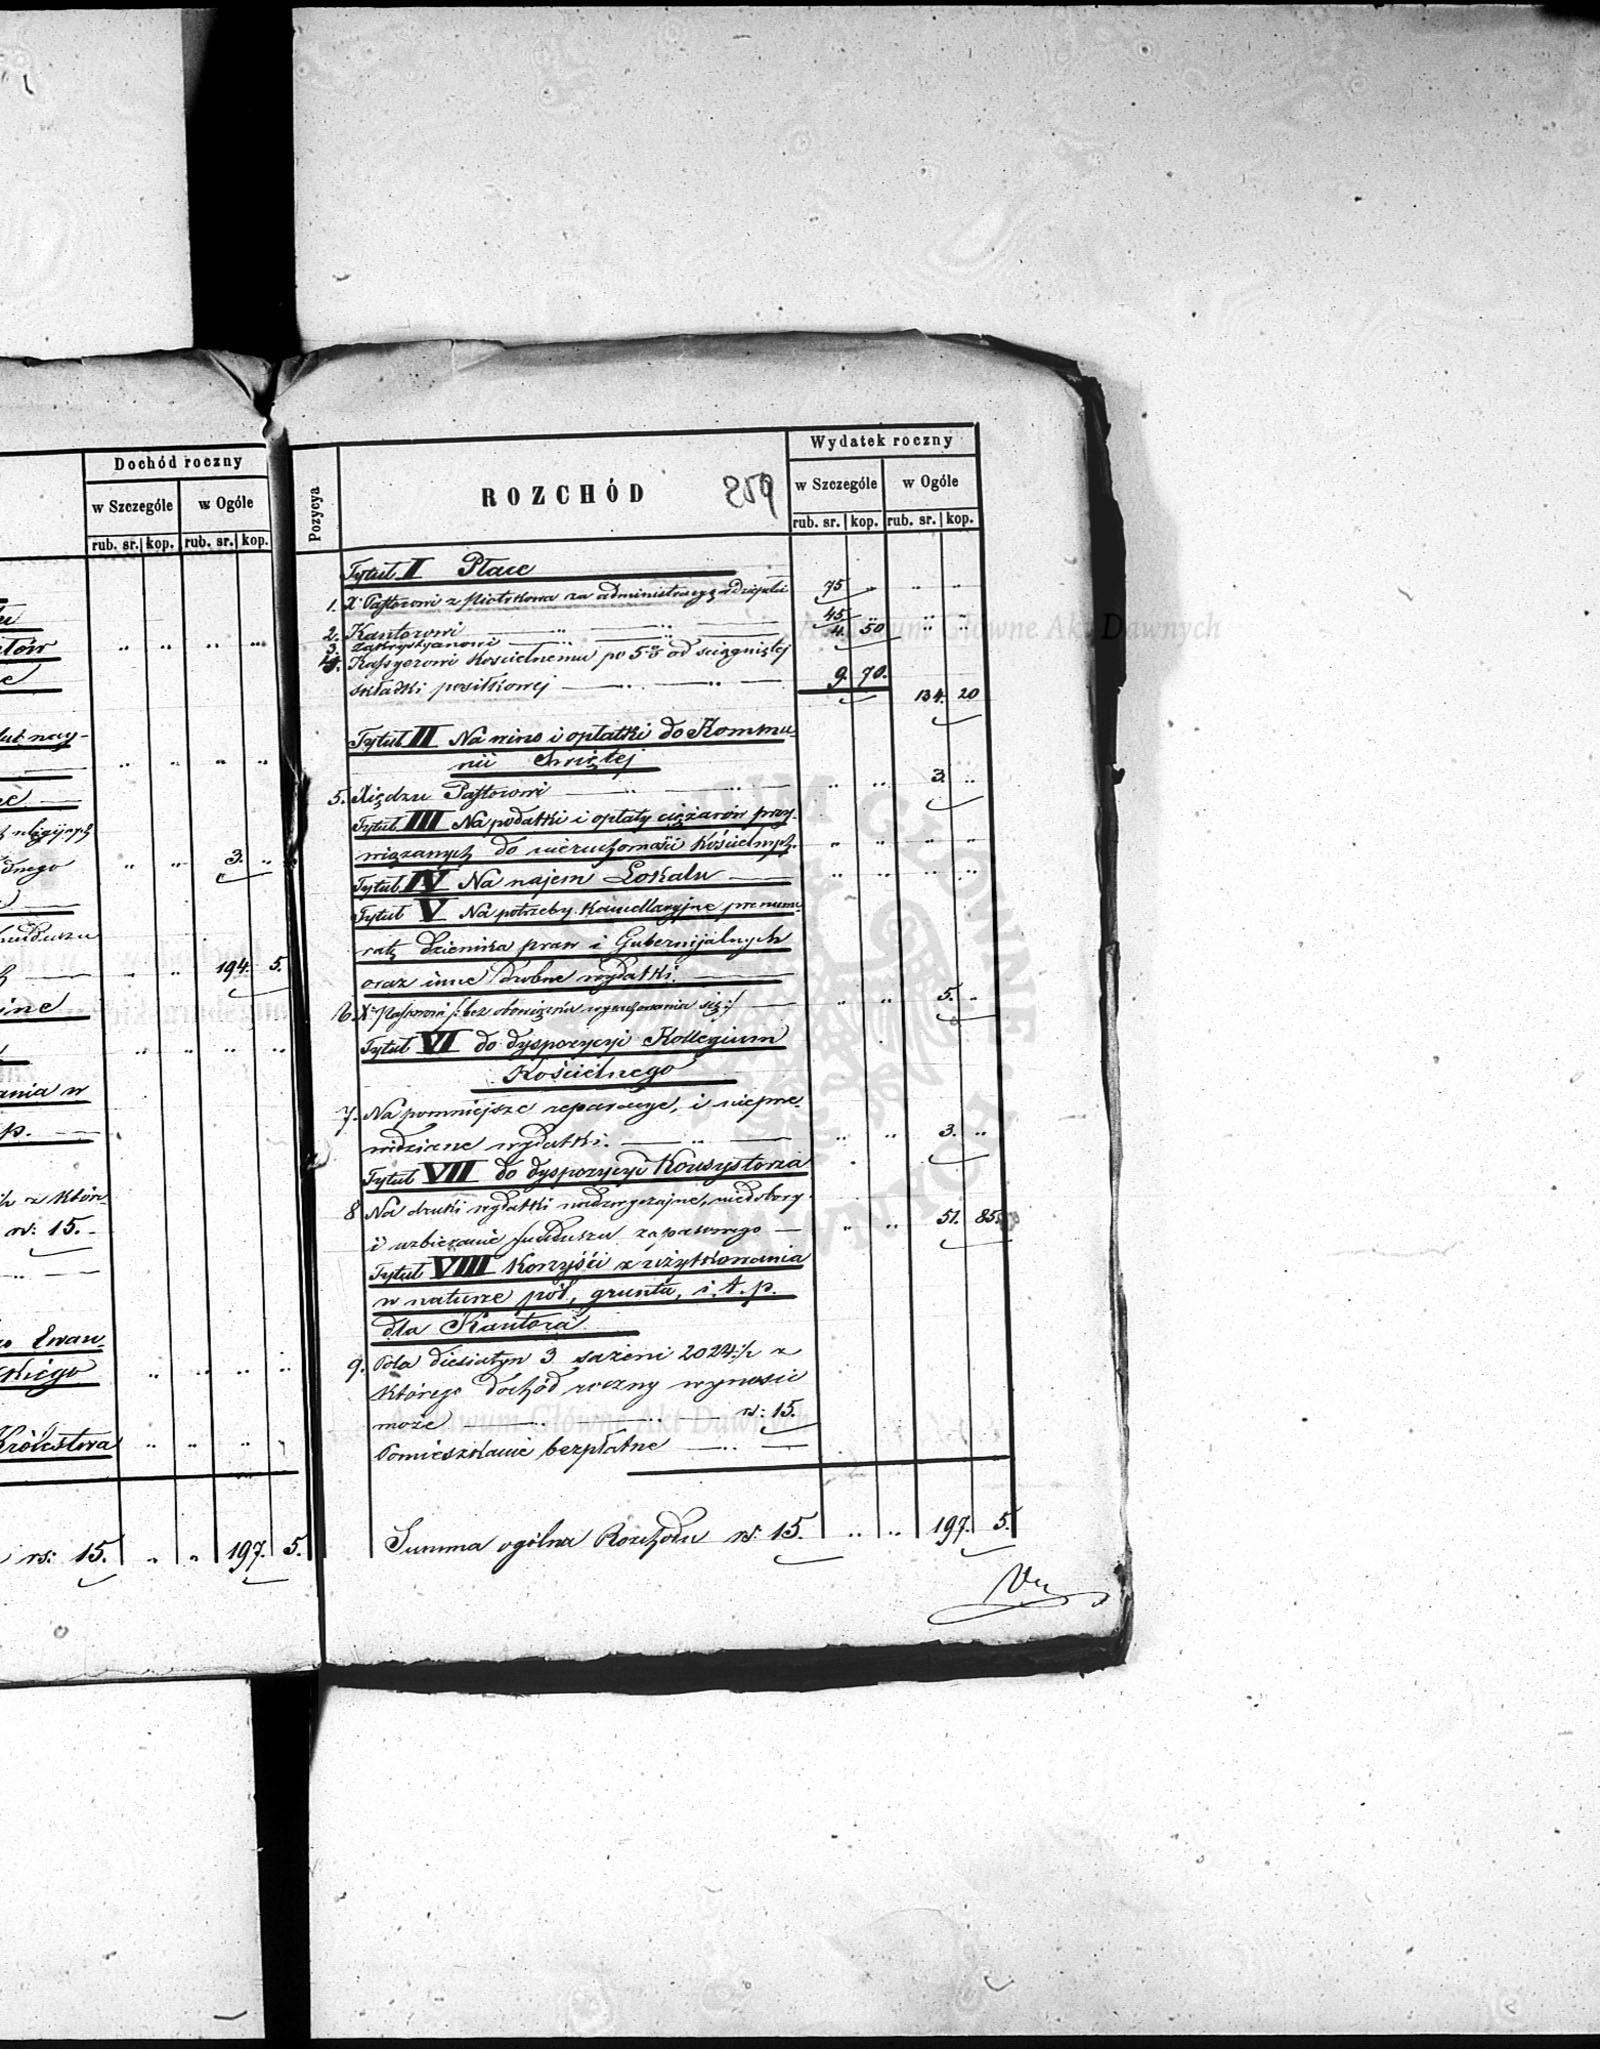 Dochód roczny
w Szczególe w Ogóle
rub. sr. kop. rub. sr. kop.
3.
194. 5.
ania w
i. t. p.
z któr-
rs: 15.
Ewan-
skiego
Królestwa
rs: 15. " " 197. 5.
Pozycya
ROZCHÓD
259
Wydatek roczny
w Szczególe w Ogóle
rub. sr. kop. rub. sr. kop.
Tytuł I Płace
1. X. Pastorowi z Piotrkowa za administracyą 75 " " "
2. Kantorowi 45 " " "
3. Zakrystyanowi 4. 50 " "
4. Kassyerowi Kościelnemu po 5% od ściągniętej
składki posiłkowej 9. 70. 134. 20
Tytuł II Na wino i opłatki do Kommu-
nii Świętej
5. Xiędzu Pastorowi " " 3. "
Tytuł III Na podatki i opłaty ciężarów przy-
wiązanych do nieruchomości Kościelnych " " " "
Tytuł IV Na najem Lokalu " " " "
Tytuł V Na potrzeby Kancellaryjne prenume-
ratę dziennika praw i Gubernijalnych
oraz inne drobne wydatki.
6. X. Pastorowi /:bez obowiązku wyrachowania się:/ " " 5. "
Tytuł VI do dyspozycyi Kollegium
Kościelnego
7. Na pomniejsze reparacye, i nieprze-
widziane wydatki. " " 3. "
Tytuł VII do dyspozycyi Konsystorza
8 Na druki wydatki nadzwyczajne, niedobory
i uzbieranie funduszu zapasowego " " 51. 85.
Tytuł VIII Korzyści z użytkowania
w naturze pól, grunta, i. t. p.
dla Kantora
9. Pola diesiatyn 3 sażeni 2024 1/2 z
którego dochód roczny wynosić
może rs: 15.
Pomieszkanie bezpłatne
Summa ogólna Rozchodu rs: 15. " " 197. 5.
Archiwum Główne Akt Dawnych